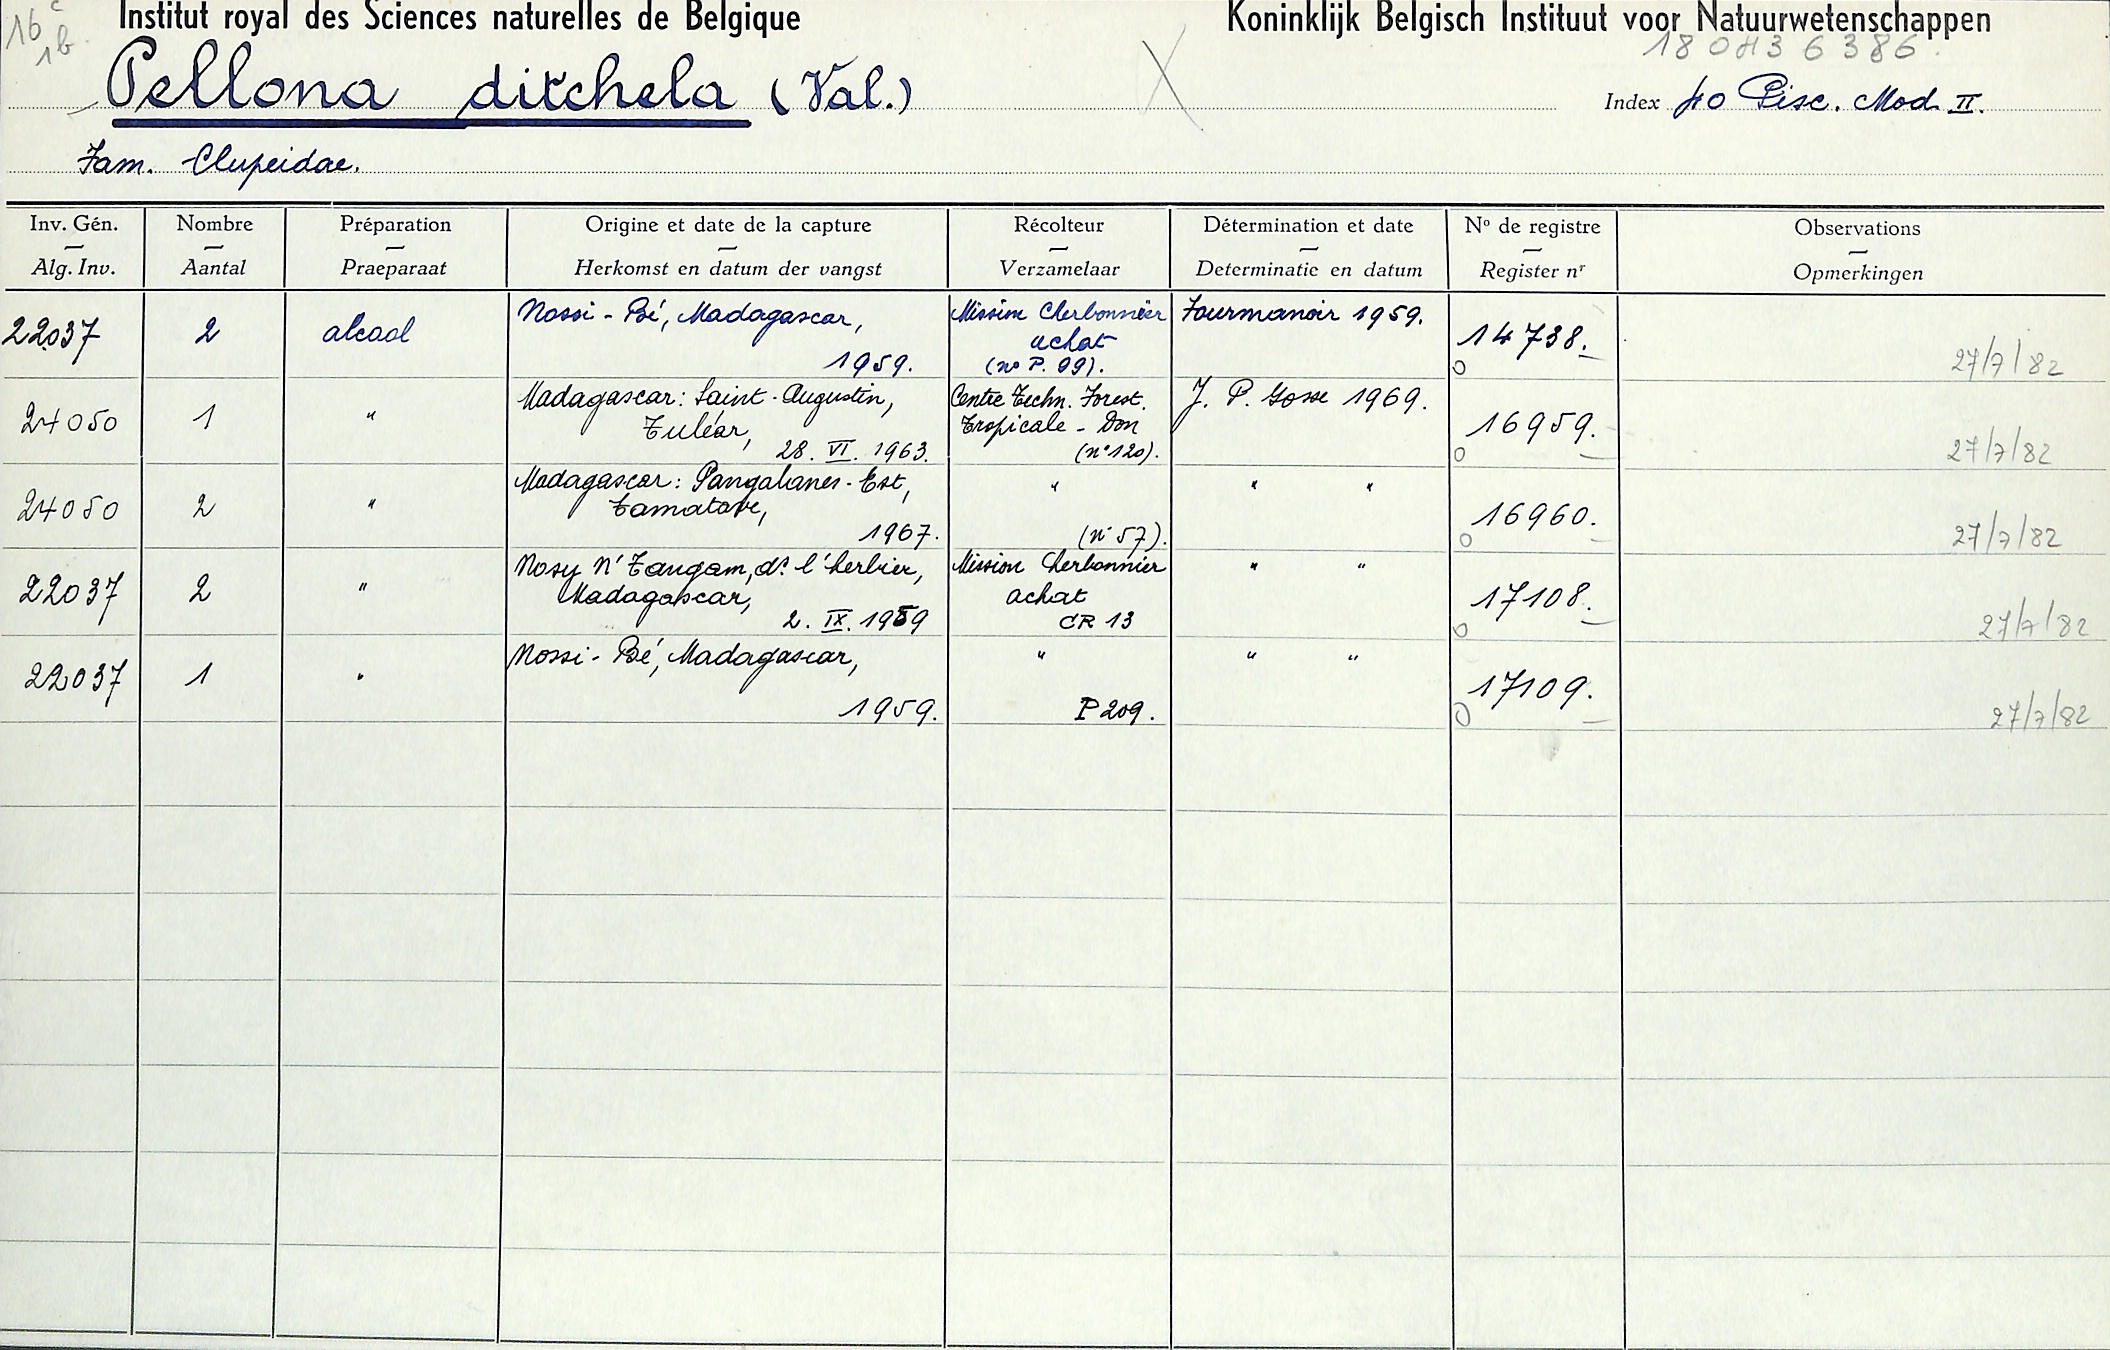 Institut royal des Sciences naturelles de Belgique
Koninklijk Belgisch Instituut voor Natuurwetenschappen
16 c
1b.
180436386.
Pellona ditchela (Val.)
Index 40 Pisc. Mod. II.
Fam. Clupeidae.
Inv. Gén. Nombre Préparation Origine et date de la capture Récolteur Détermination et date No de registre Observations
Alg. Inv. Aantal Praeparaat Herkomst en datum der vangst Verzamelaar Determinatie en datum Register nr Opmerkingen
22037 2 alcool Nossi-Bé, Madagascar, Mission Cherbonnier Fourmanoir 1959. 14738.
achat
1959. (no P. 99). 0 27/7/82
24050 1 " Madagascar: Saint-Augustin, Centre Techn. Forest. J. P. Gosse 1969. 16959.
Tuléar, Tropicale - Don
28. VI. 1963. (n° 120). 0 27/7/82
24050 2 " Madagascar: Pangalanes-Est, " " " 16960.
Tamatave,
1967. (n° 57). 0 27/7/82
22037 2 " Nosy N'Tangam, ds l'herbier, Mission Cherbonnier " " 17108.
Madagascar, achat
2. IX. 1959 CR 13 0 27/7/82
22037 1 " Nossi-Bé, Madagascar, " " " 17109.
1959. P 209. 0 27/7/82